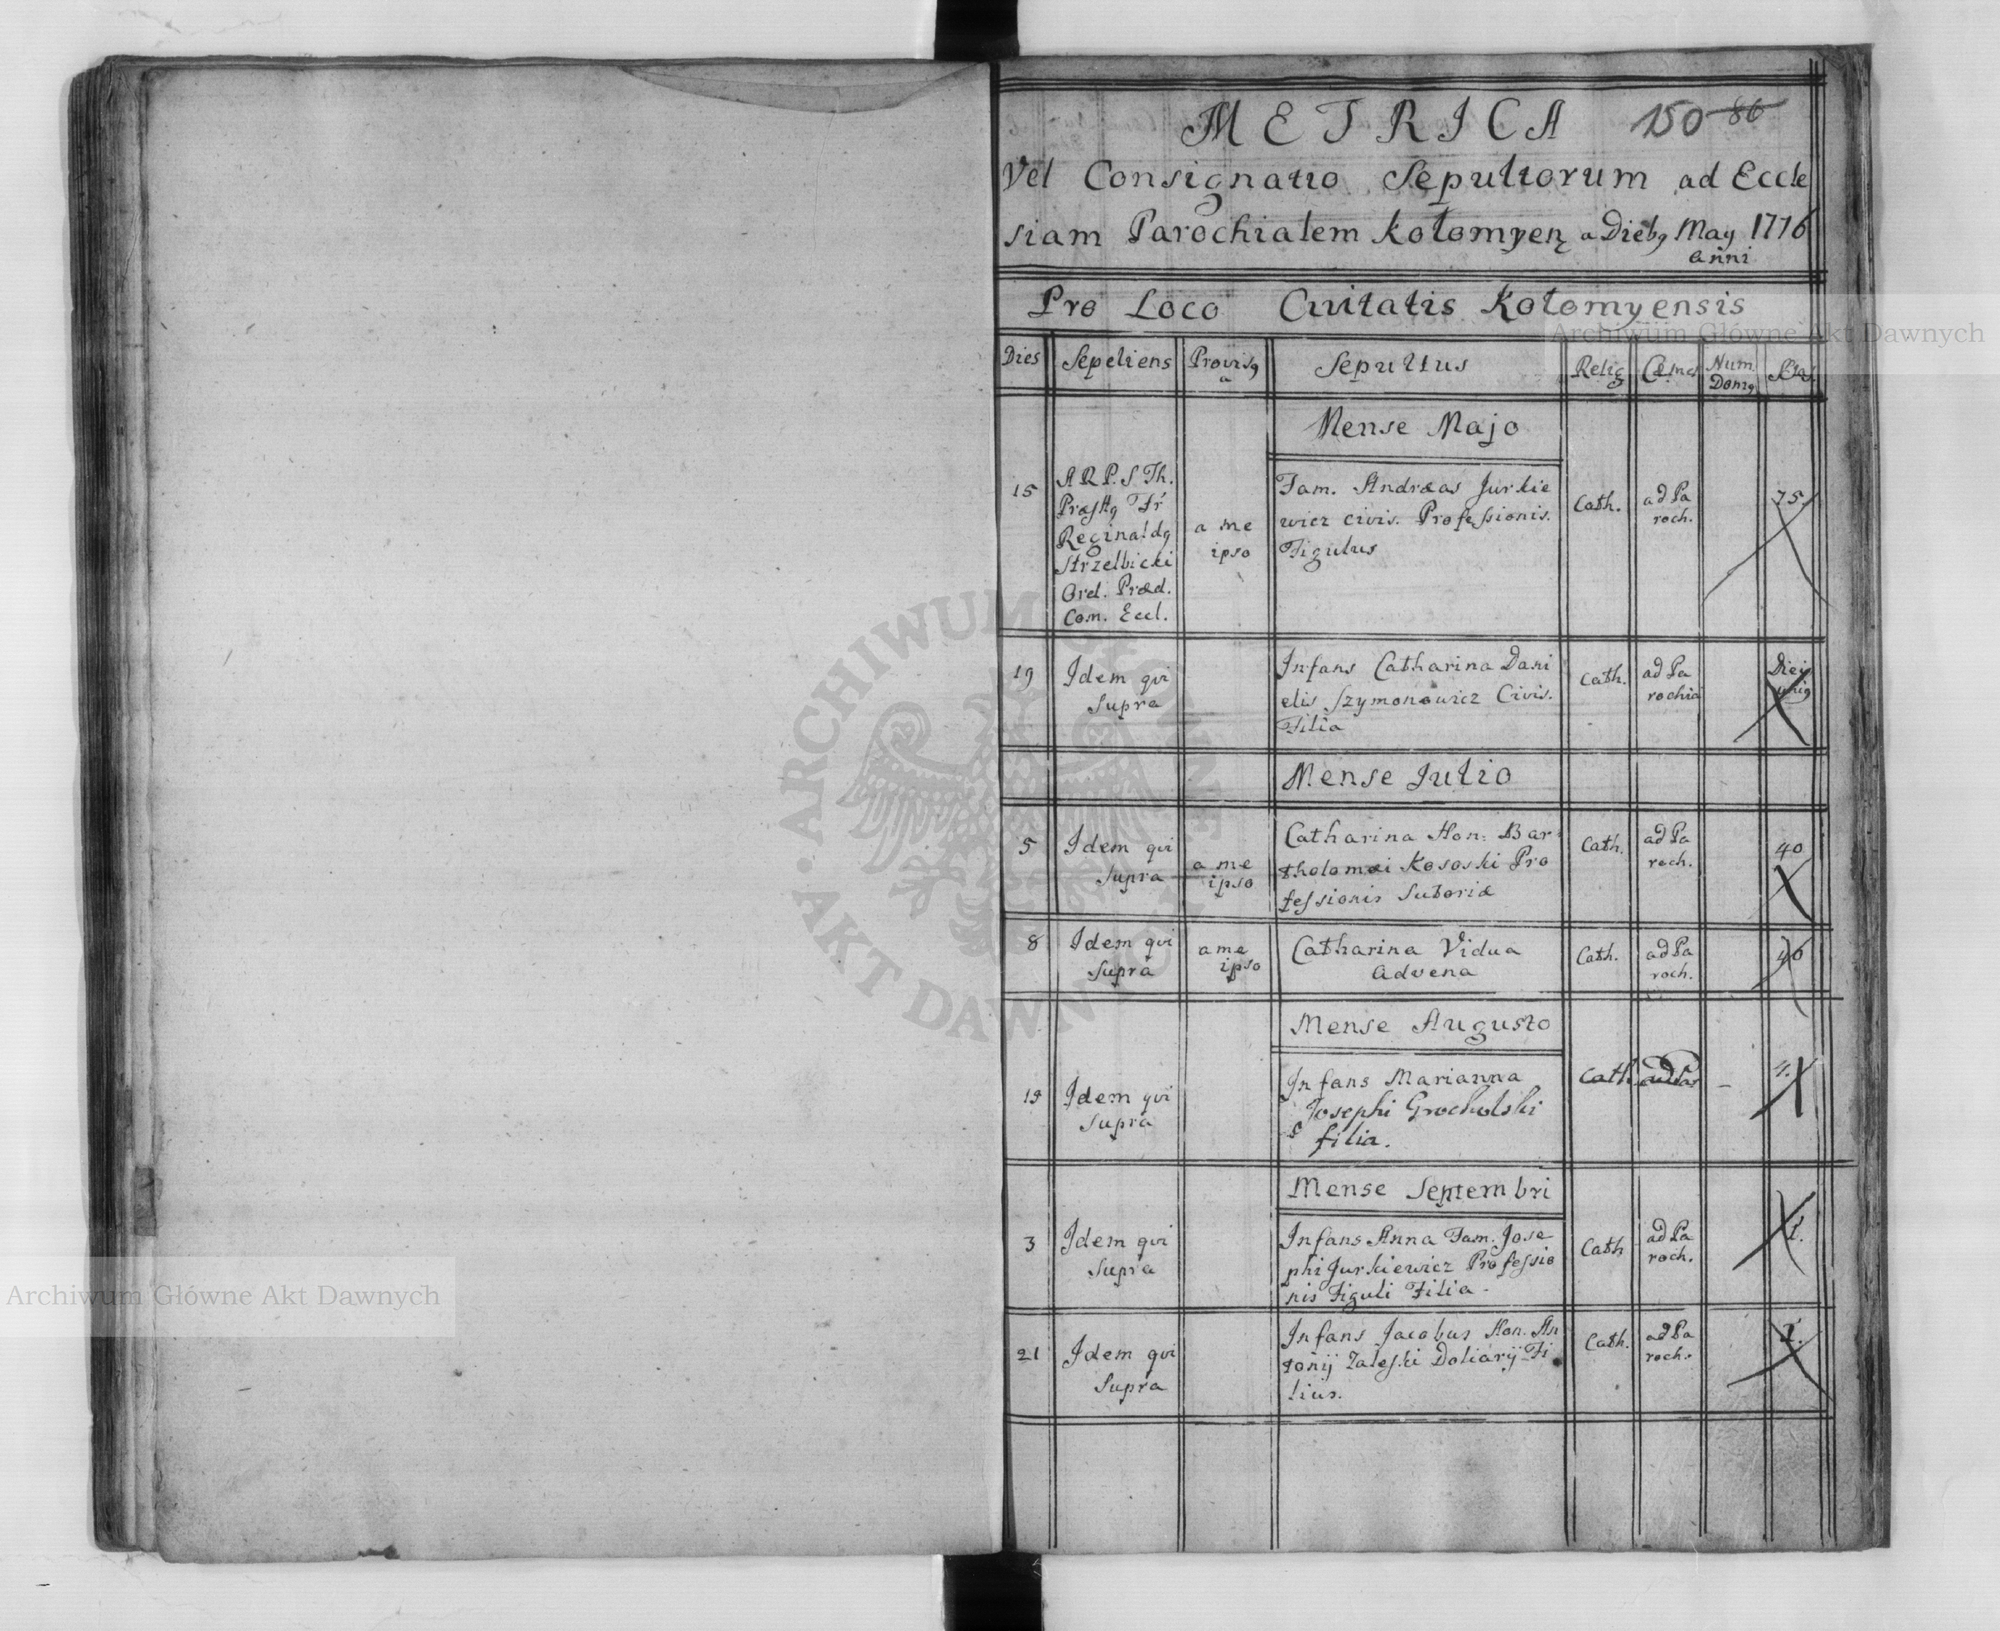 METRICA 150 86
Vel Consignatio Sepultorum ad Eccle
siam Parochialem Kołomyen: a Dieb9 May 1776
Anni
Pro Loco Civitatis Kołomyensis
Dies Sepeliens Provis9 a Sepultus Relig Num Dom9
Mense Majo
15
A R P. S Th.
Fr
Reginald9
Strzelbicki
Ord. Præd.
Com. Eccl.
a me
ipso
Fam. Andræas Jurkie
wicz civis. Professionis.
Figulus
Cath.
ad Pa
roch.
75.
19
Idem qui
Supra
Infans Catharina Dani
elis Szymonowicz Civis.
Filia
Cath.
ad Pa
rochia
Diei
Mense Julio
5
Idem qui
supra
a me
ipso
Catharina Hon: Bar
tholomæi Kososki Pro
fessionis Sutoriæ
Cath.
ad Pa
roch.
40
8
Idem qui
Supra
a me
ipso
Catharina Vidua
Advena
Cath.
ad Pa
roch.
40
Mense Augusto
19
Idem qui
Supra
Infans Marianna
Josephi Grocholski
filia.
Cath
Mense Septembri
3
Idem qui
Supra
Infans Anna Fam. Jose
phi Jurkiewicz Professio
nis Figuli Filia.
Cath
ad Pa
roch.
1.
21
Idem qui
Supra
Infans Jacobus Hon. An
tonij Zaleski Doliarij Fi
lius.
Cath.
ad Pa
roch.
Archiwum Główne Akt Dawnych
Archiwum Główne Akt Dawnych
ARCHIWUM GŁÓWNE AKT DAWNYCH